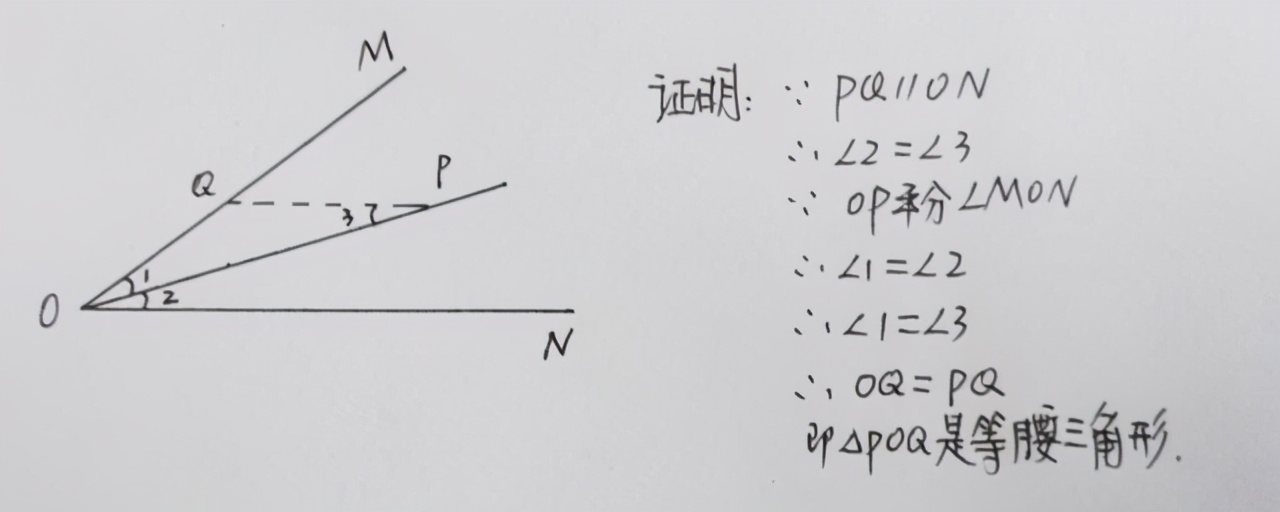 M
Q
P
3
1
2
O
N
证明: ∵ PQ//ON
∴ ∠2=∠3
∵ OP平分∠MON
∴ ∠1=∠2
∴ ∠1=∠3
∴ OQ=PQ
即△POQ是等腰三角形.